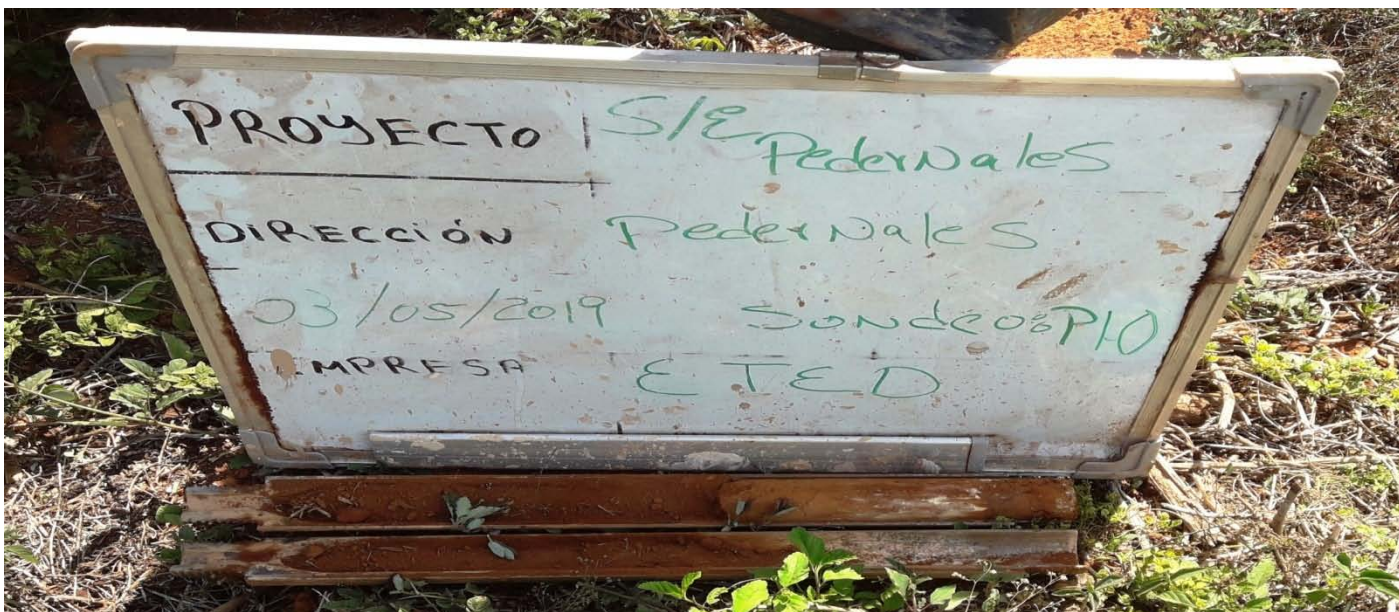 PROYECTO S/E Pedernales
DIRECCIÓN Pedernales
03/05/2019 Sondeo: P10
EMPRESA ETED